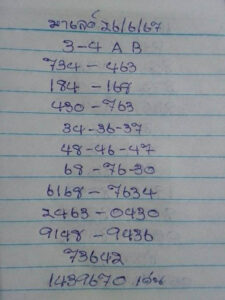 มาเลย์ 26/6/67
3-4 A B
734 - 463
184 - 168
430 - 763
34-36-37
48-46-47
68 - 76-30
6168 - 7634
2463 - 0430
9148 - 9436
73642
1439670 เด่น